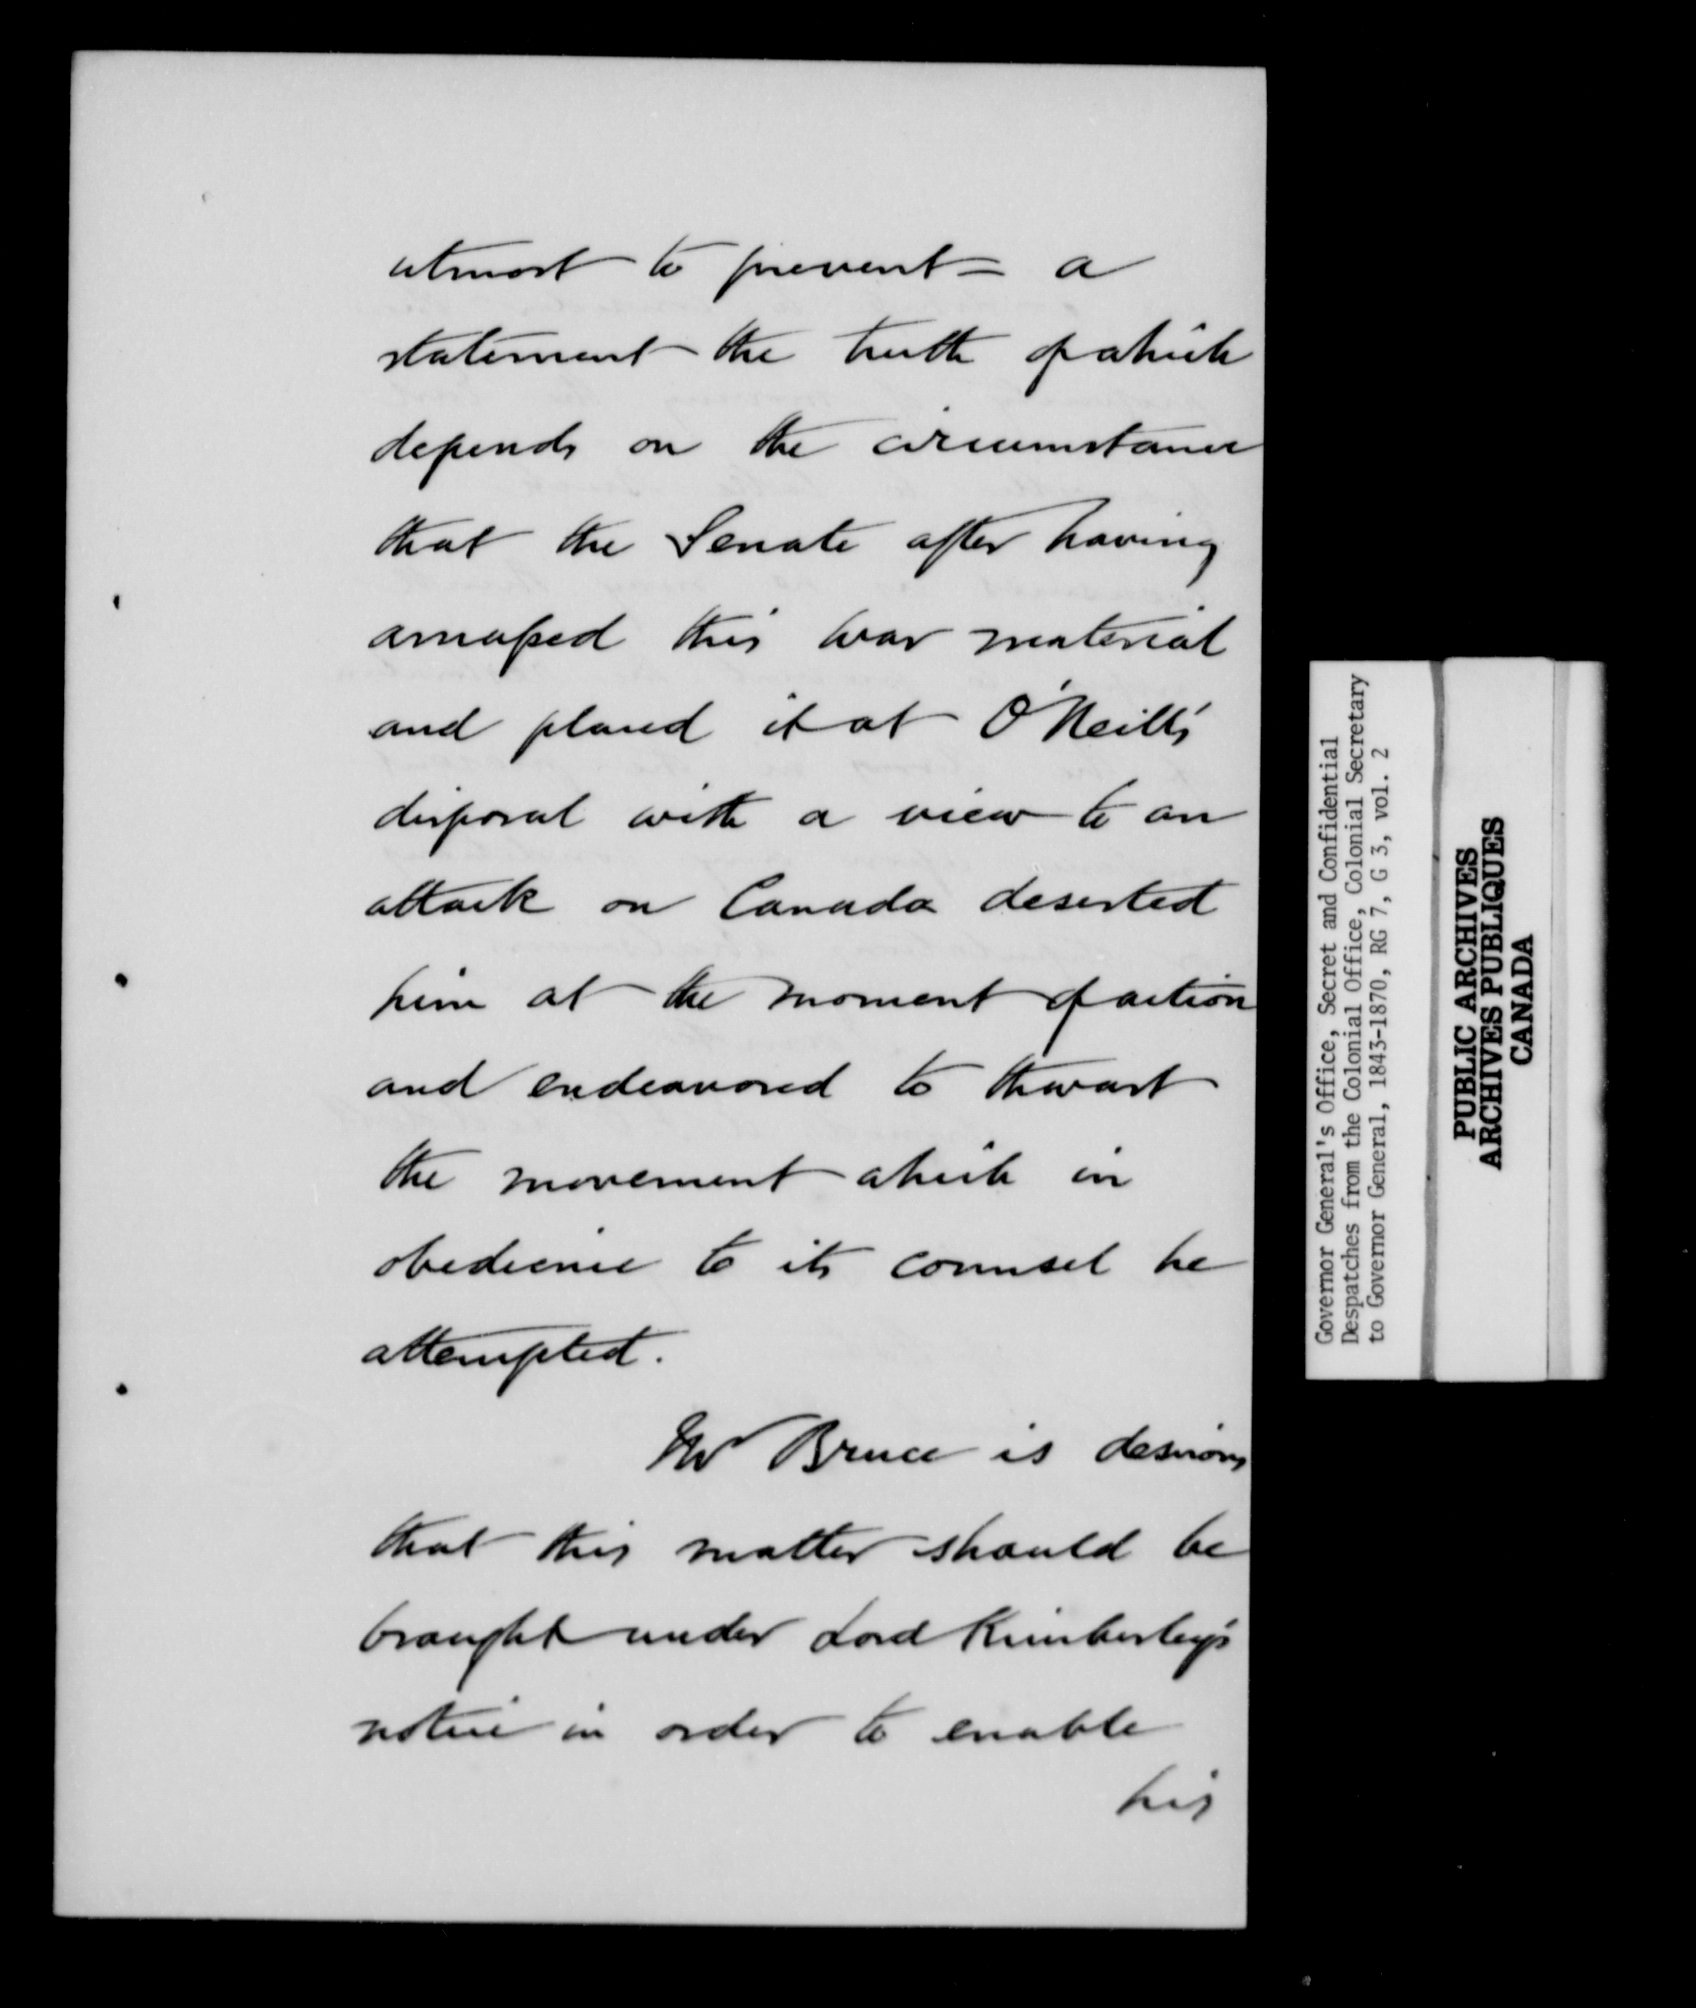 utmost to prevent – a
statement the truth of which
depends on the circumstance
that the Senate after having
amassed this war material
and placed it at O'Neill's
disposal with a view to an
attack on Canada deserted
him at the moment of action
and endeavored to thwart
the movement which in
obedience to its counsel he
attempted.
Mr Bruce is desirous
that this matter should be
brought under Lord Kimberley's
notice in order to enable
his
Governor General's Office, Secret and Confidential
Despatches from the Colonial Office, Colonial Secretary
to Governor General, 1843-1870, RG 7, G 3, vol. 2
PUBLIC ARCHIVES
ARCHIVES PUBLIQUES
CANADA